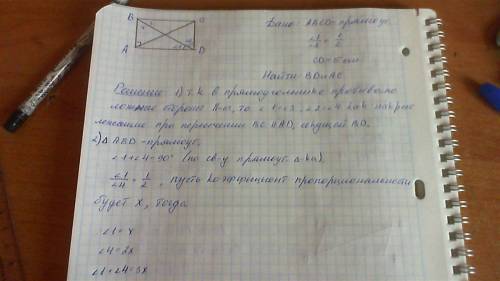 B
C
A
D
Дано: ABCD-прямоуг.
∠1/∠4 = 1/2
CD=5 см.
Найти: BD и AC
Решение: 1) т.к в прямоугольнике
стороны то, ∠1=∠3, ∠2=∠4 как накрест
лежащие при пересечении BC и AD, секущей BD.
2) △ ABD -прямоуг.
∠1+∠4=90° (по св-у прямоуг. △-ка)
∠1/∠4 = 1/2, пусть коэффициент пропорциональности
будет x, тогда
∠1=x
∠4=2x
∠1+∠4=3x